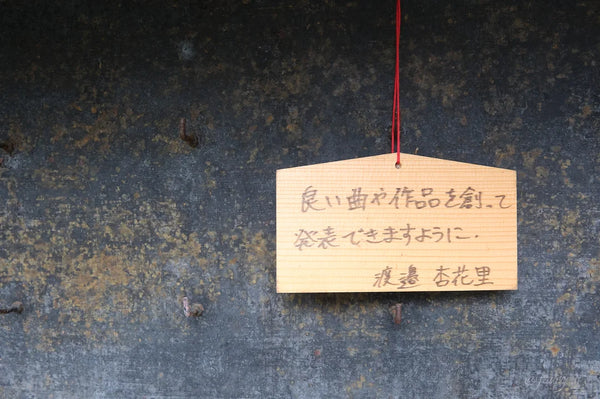 良い曲や作品を創って
発表できますように.
渡邉 杏花里